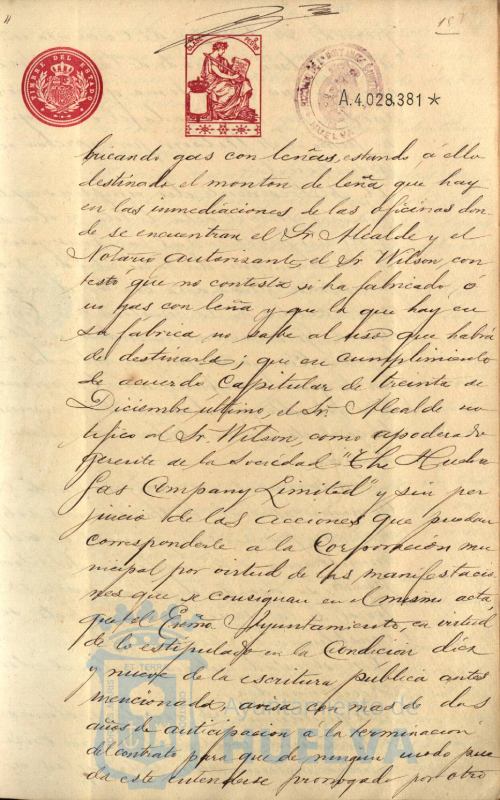 TIMBRE DEL ESTADO
HUELVA
A.4,028,381 *
bricando gas con leñas, estando á ello
destinado el monton de leña que hay
en las inmediaciones de las oficinas don
de se encuentran el Sr. Alcalde y el
Notario autorizante, el Sr. Wilson con
testó que no contesta si ha fabricado ó
no gas con leña y que la que hay en
su fábrica no sabe al uso que habrá
de destinarla; que en cumplimiento
de acuerdo Capitular de treinta de
Diciembre último, el Sr. Alcalde no
tificó al Sr. Wilson, como apoderado
Gerente de la Sociedad "The Huelva
Gas Company Limited" y sin per
juicio de las acciones que puedan
corresponderle á la Corporación mu
nicipal por virtud de las manifestacio
nes que se consignan en el mismo acta,
que el Excmo. Ayuntamiento, en virtud
de lo estipulado en la Condición diez
y nueve de la escritura pública antes
mencionada, avisa con mas de dos
años de anticipacion á la terminación
del contrato para que de ningun modo pue
da este entenderse prorrogado por otro
Ayuntamiento de
HUELVA